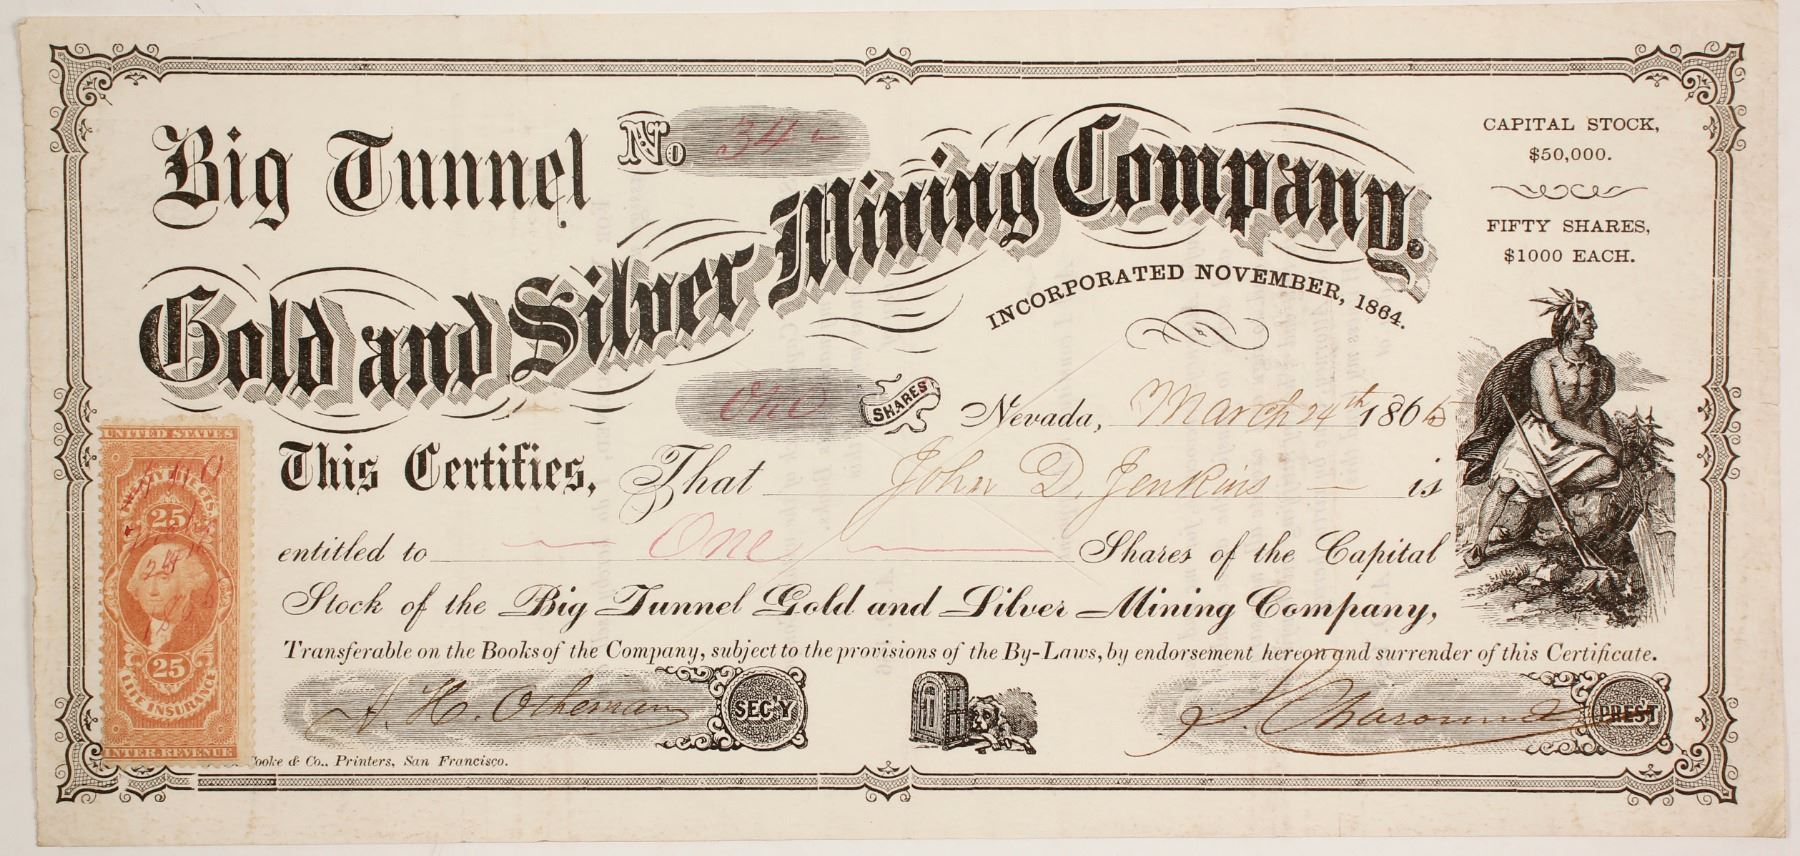 Big Tunnel
No 34
Gold and Silver Mining Company.
INCORPORATED NOVEMBER, 1864.
CAPITAL STOCK,
$50,000.
FIFTY SHARES,
$1000 EACH.
One SHARES
Nevada, March 24th 1865
This Certifies, That John D. Jenkins is
entitled to One Shares of the Capital
Stock of the Big Tunnel Gold and Silver Mining Company,
Transferable on the Books of the Company, subject to the provisions of the By-Laws, by endorsement hereon and surrender of this Certificate.
A. H. Otheman SEC'Y
PREST
ooke & Co., Printers, San Francisco.
UNITED STATES
TWENTY FIVE CTS.
25
25
LIFE INSURANCE
INTER. REVENUE